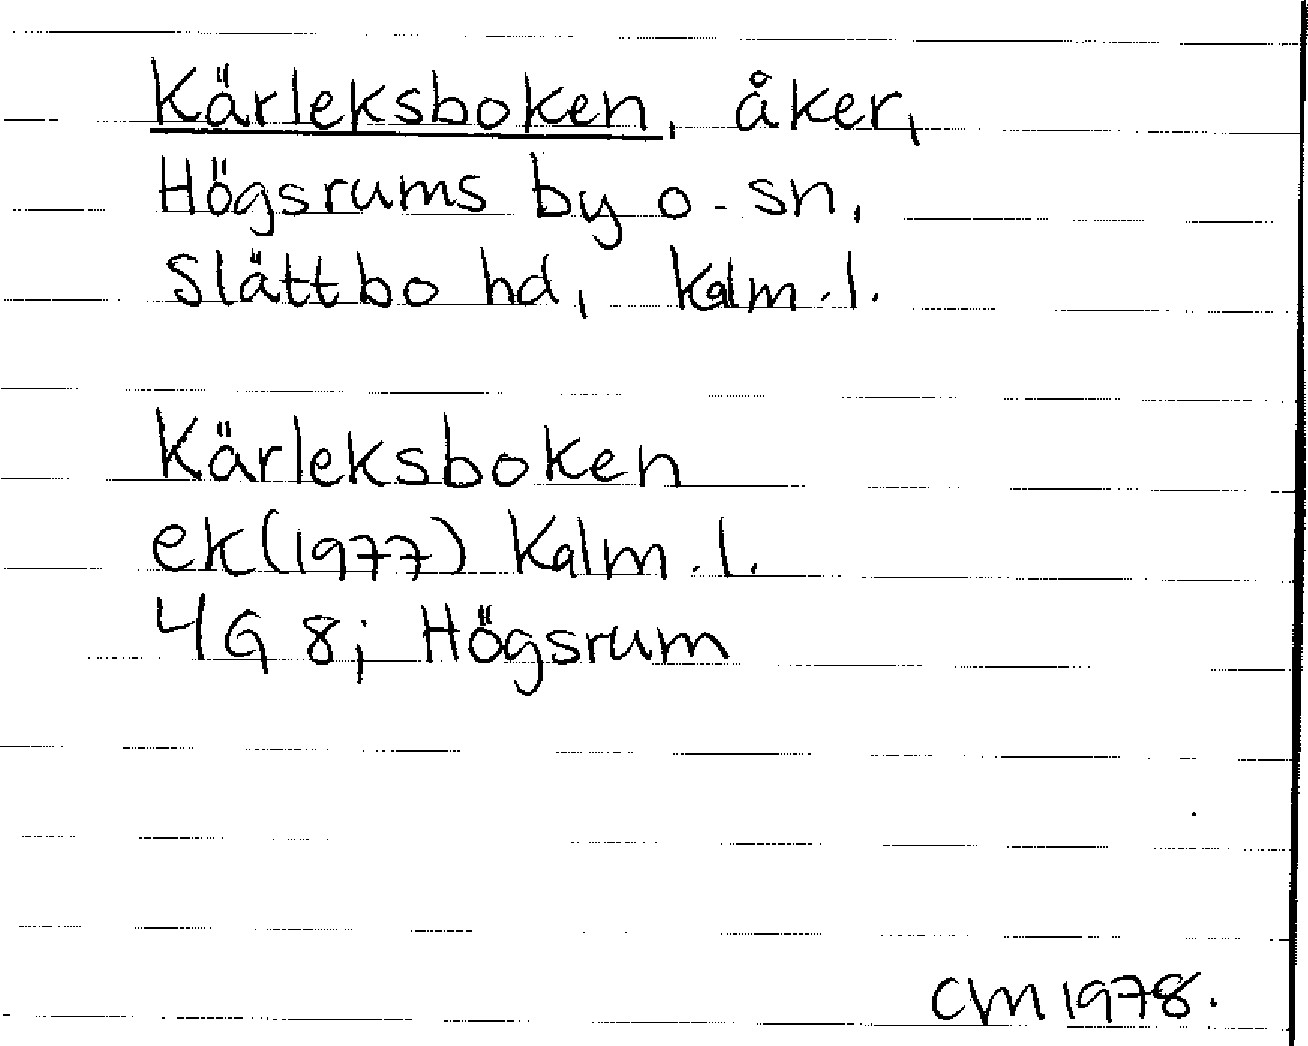 Kärleksboken, åker,
Högsrums by o. sn,
Slättbo hd, Kalm.l.
Kärleksboken
ek(1977) Kalm.l.
4G 8j Högsrum
CM 1978.